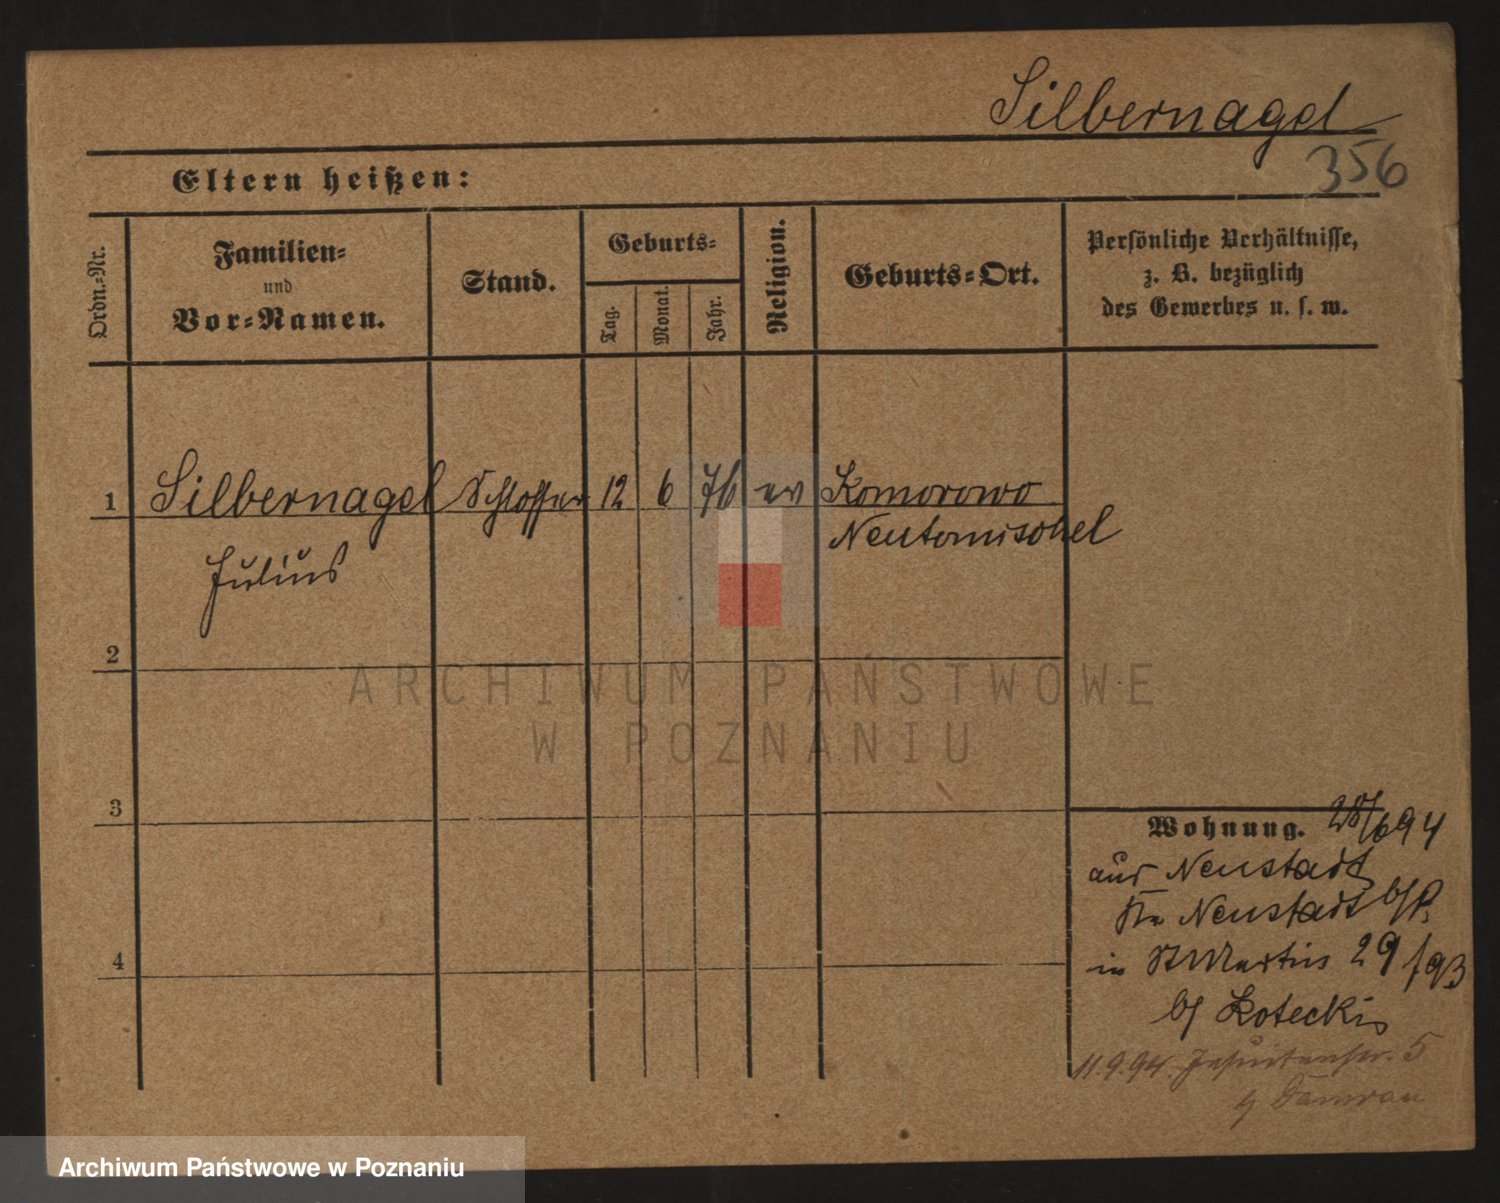 Silbernagel
356
Eltern heißen:
Ordn.-Nr.
Familien-
und
Vor-Namen.
Stand.
Geburts-
Tag.
Monat.
Jahr.
Religion.
Geburts-Ort.
Persönliche Verhältnisse,
z. B. bezüglich
des Gewerbes u. s. w.
1 Silbernagel Schlosser 12 6 76 ev Komorowo
Neutomischel
Julius
2
ARCHIWUM PAŃSTWOWE
W POZNANIU
3
Wohnung. 28/6 94
aus Neustadt
Kr. Neustadt b/P.
in St Martin 29 /93
b/ Kotecki
4
11.9.94. Jesuitenstr. 5
b/ Damrau
Archiwum Państwowe w Poznaniu